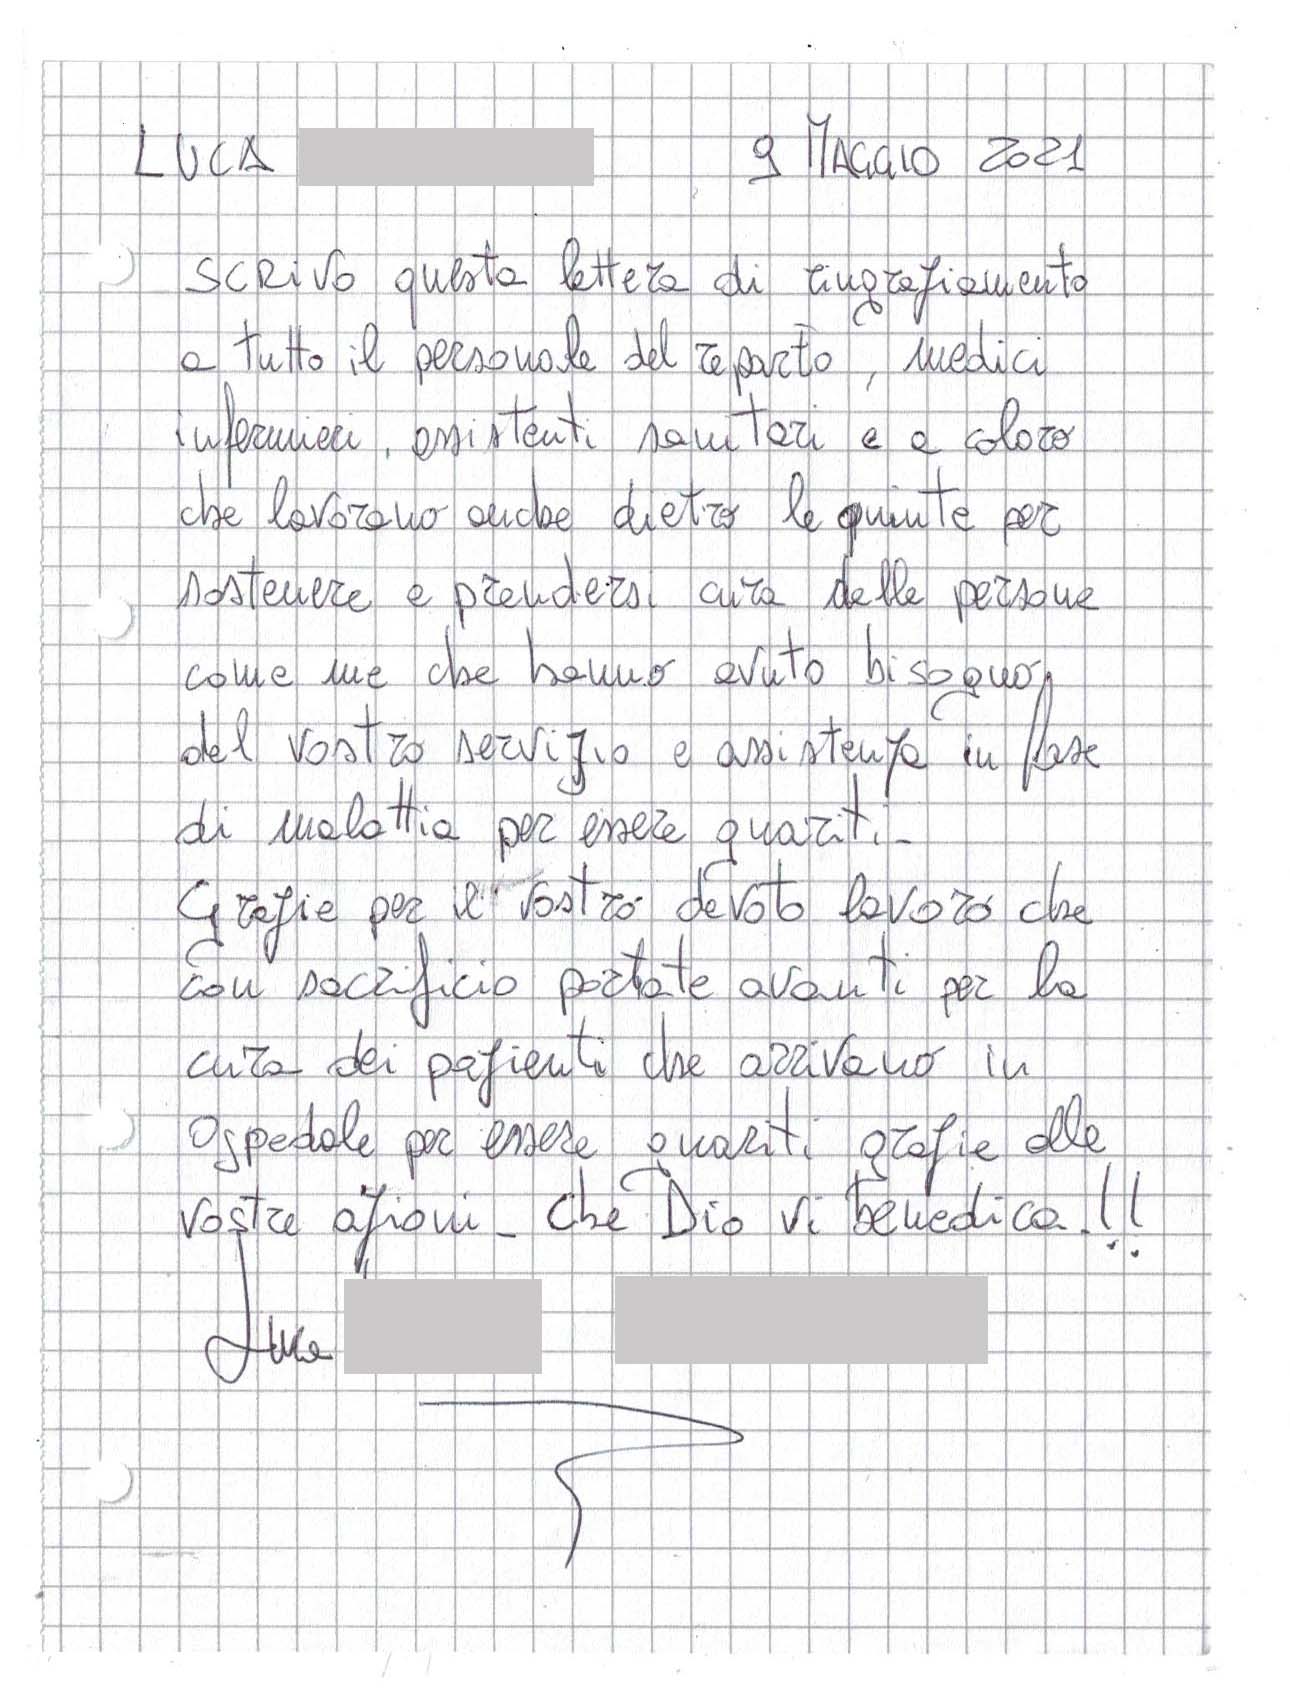 LUCA 9 MAGGIO 2021
SCRIVO questa lettera di ringraziamento
a tutto il personale del reparto, medici
infermieri, assistenti sanitari e a coloro
che lavorano anche dietro le quinte per
sostenere e prendersi cura delle persone
come me che hanno avuto bisogno
del vostro servizio e assistenza in fase
di malattia per essere guariti_
Grazie per il vostro devoto lavoro che
con sacrificio portate avanti per la
cura dei pazienti che arrivano in
Ospedale per essere guariti grazie alle
vostre azioni_ Che Dio vi benedica.!!
Luca